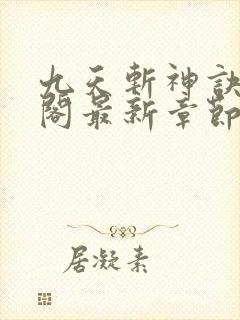 九天斬神訣
閣最新章節
居凝素